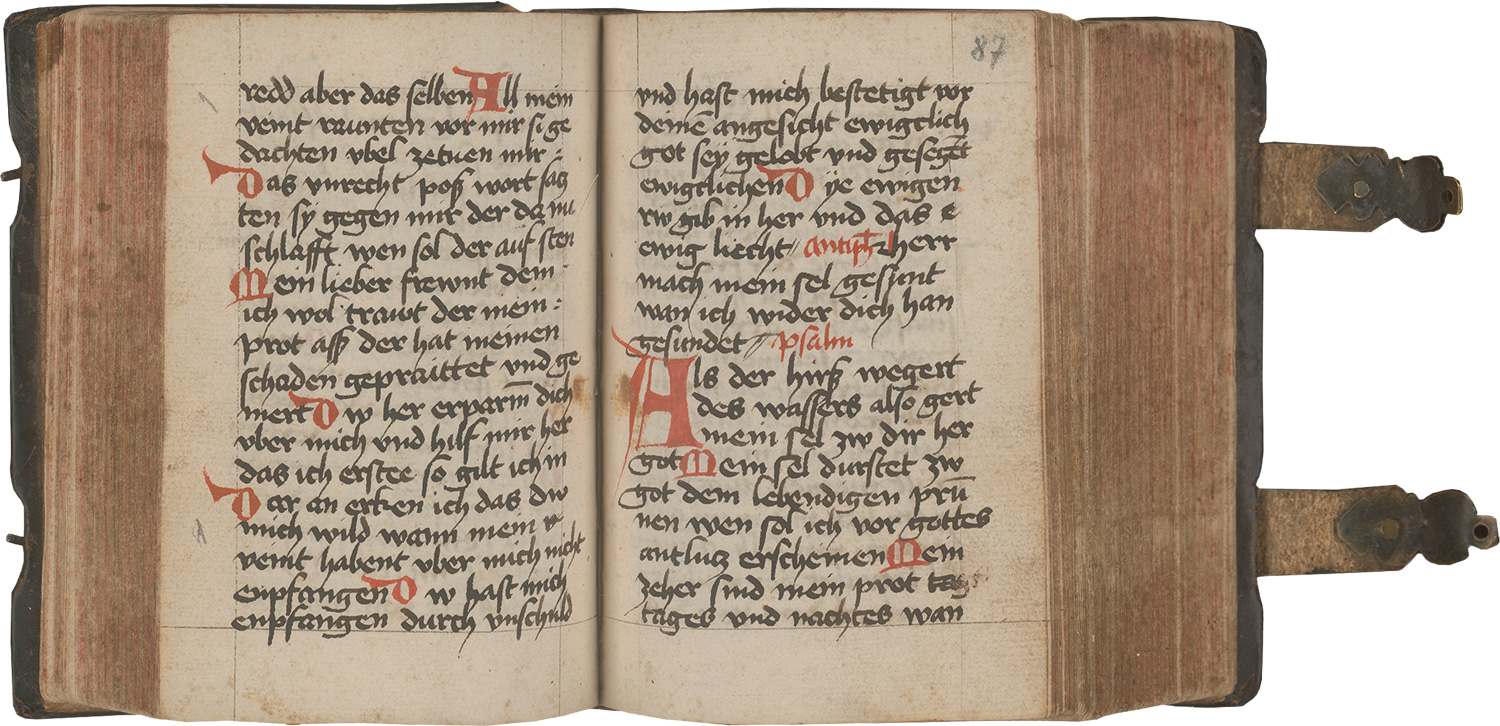 redd aber das selben All mein
veint raunten vor mir si ge
dachten vbel zetuen mir :
Das vnrecht poß wort sag
ten sy gegen mir der da nu
schlafft wen sol der auf sten
Mein lieber frewnt dem
ich wol trawt der mein :
prot aß der hat meinen
schaden gepraittet vnd ge
mert Dw her erparm dich
vber mich vnd hilf mir her
das ich erstee so gilt ich in
Dar an erken ich das dw
mich wild wann mein v
veint habent vber mich nicht
enpfangen Dw hast mich
enpfangen durch vnschuld
87
vnd hast mich bestetigt vor
deinē angesicht ewigclich
got sey gelobt vnd gesegēt
ewigclichen Dye ewigen
rw gib in her vnd das e
ewig liecht antiph herr
mach mein sel gesunt
wan ich wider dich han
gesundet psalm
Als der hirß wegert
des wassers also gert
mein sel zw dir her
got Mein sel durstet zw
got dem lebendigen prū
nen wen sol ich vor gottes
antlutz erscheinen Mein
zeher sind mein prot tag
tages vnd nachtes wan